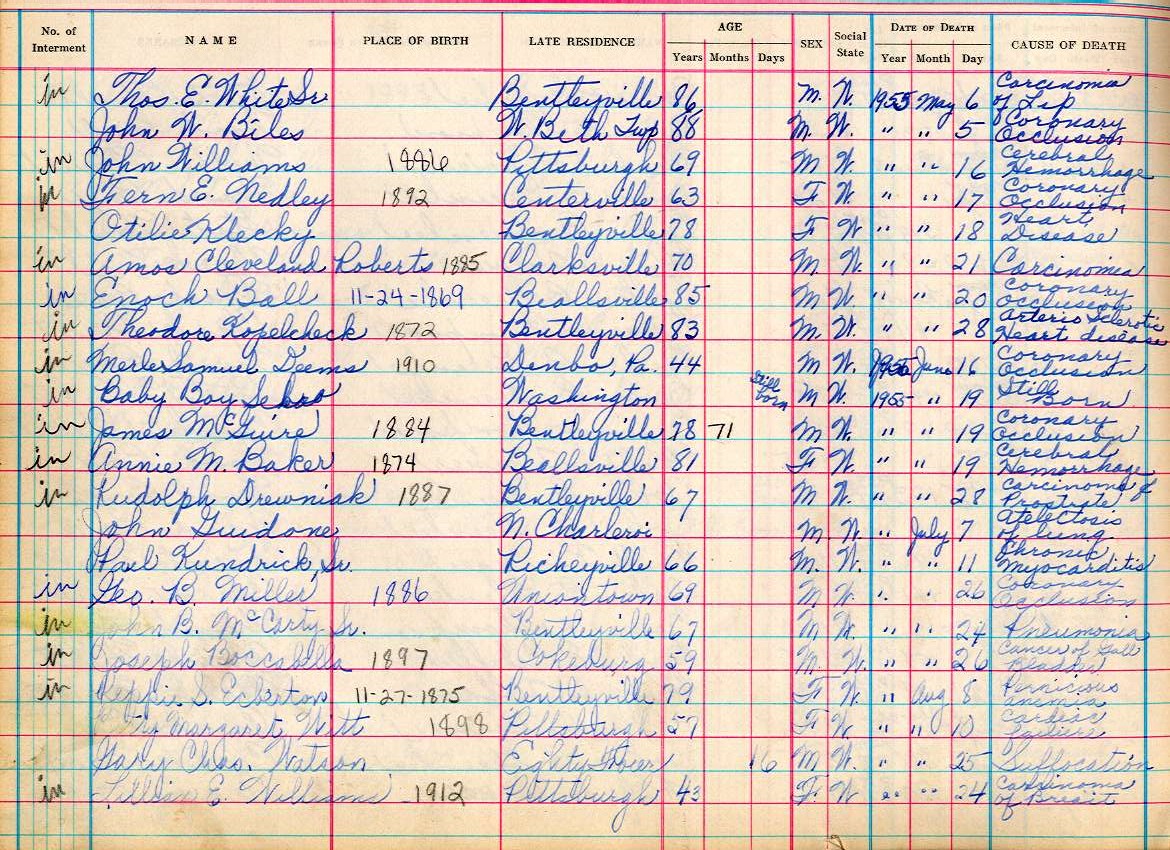 No. of Interment NAME PLACE OF BIRTH LATE RESIDENCE AGE Years Months Days SEX Social State DATE OF DEATH Year Month Day CAUSE OF DEATH
in Thos. E. White Sr Bentleyville 86 M. W. 1955 May 6 Carcinoma of Lip
John W. Biles W. Beth Twp 88 M. W. " " 5 Coronary Occlusion
in John Williams 1886 Pittsburgh 69 M W. " " 16 Cerebral Hemorrhage
in Fern E. Nedley 1892 Centerville 63 F W. " " 17 Coronary Occlusion
Otilie Klecky Bentleyville 78 F W. " " 18 Heart Disease
in Amos Cleveland Roberts 1885 Clarksville 70 M W. " " 21 Carcinomia
in Enoch Ball 11-24-1869 Beallsville 85 M W " " 20 Coronary Occlusion
in Theodore Kopelcheck 1872 Bentleyville 83 M. W. " " 28 Arterio Sclerotic Heart disease
in Merle Samuel Deems 1910 Denbo, Pa. 44 M W. 1955 June 16 Coronary Occlusion
in Baby Boy Washington Still born M W. 1955 " 19 Still Born
in James McGuire 1884 Bentleyville 78 71 M W. " " 19 Coronary Occlusion
in Annie M. Baker 1874 Beallsville 81 F W. " " 19 Cerebral Hemorrhage
in Rudolph Drewniak 1887 Bentleyville 67 M W. " " 28 Carcinoma of Prostrate
John Guidone N. Charleroi M. W. " July 7 Atelectosis of lung
Paul Kundrick, Sr. Richeyville 66 M. W. " " 11 Chronic Myocarditis
in Geo. B. Miller 1886 Uniontown 69 M W " " 26 Coronary Occlusion
in John B. McCarty Sr. Bentleyville 67 M W. " " 24 Pneumonia
in Joseph Boccabella 1897 Cokeburg 59 M. W. " " 26 Cancer of Gall Bladder
in S. Eckerton 11-27-1875 Bentleyville 79 F W. " Aug 8 Pernicious Anemia
Margaret Witt 1898 Pittsburgh 57 F W " " 10 Cardiac Failure
Gary Chas. Watson Eighty Four 16 M W. " " 25 Suffocation
in Lillian E. Williams 1912 Pittsburgh 43 F W " " 24 Carcinoma of Breast